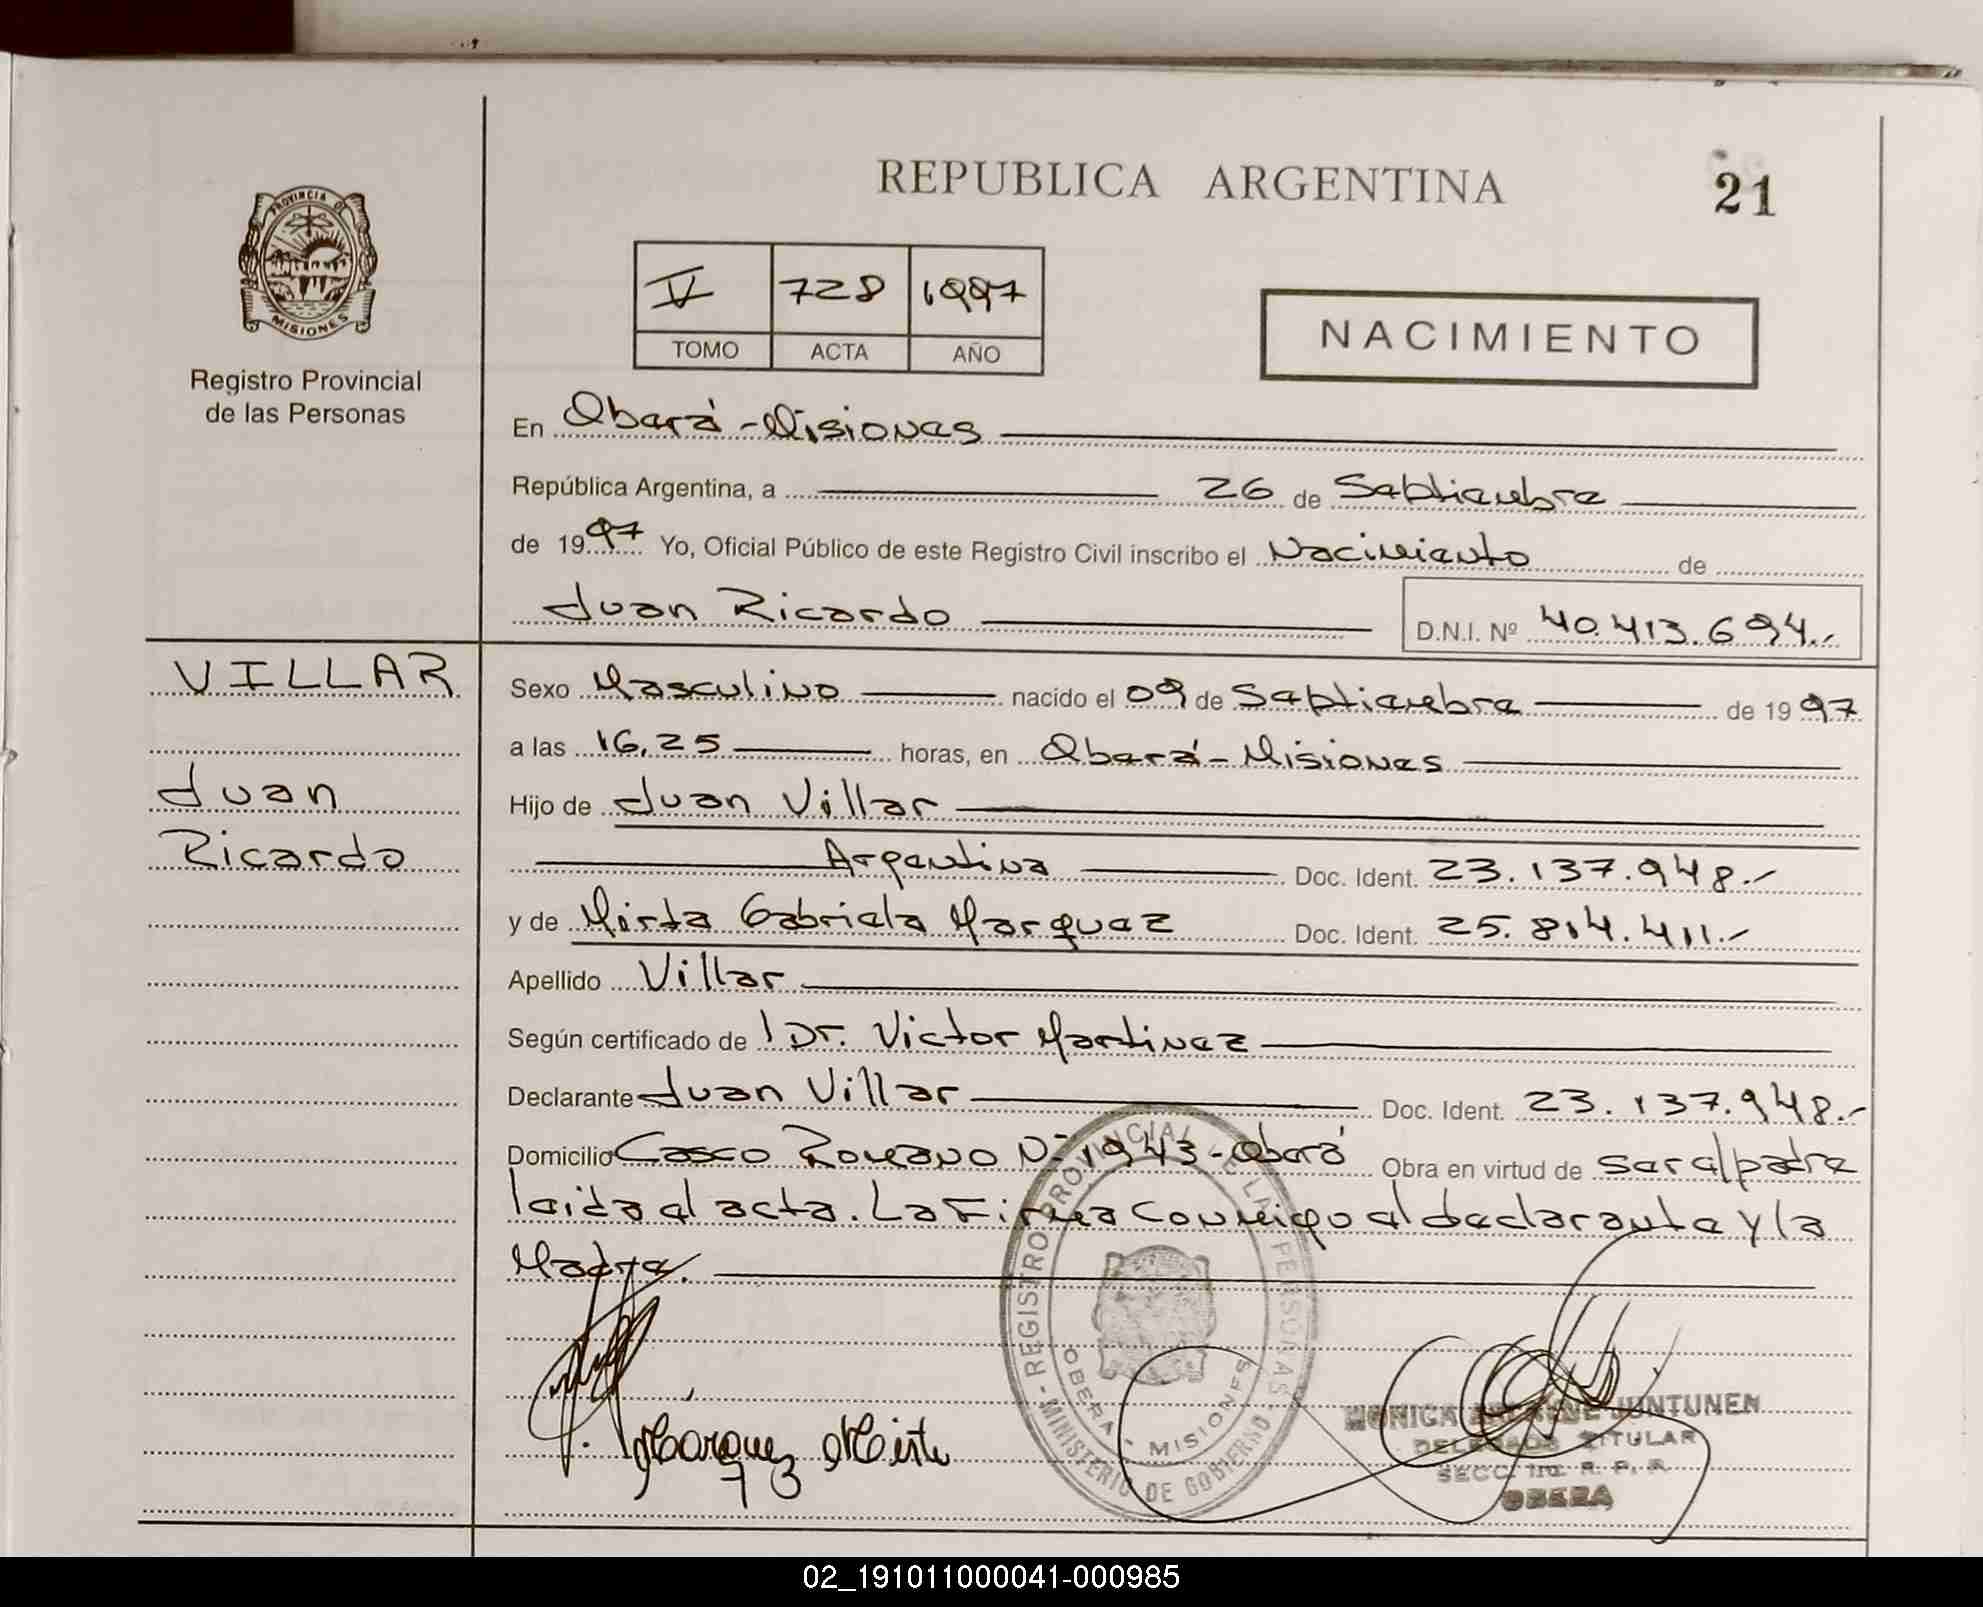 REPUBLICA ARGENTINA
21
PROVINCIA D
MISIONES
Registro Provincial
de las Personas
V 728 1997
TOMO ACTA AÑO
NACIMIENTO
En Oberá - Misiones
República Argentina, a 26 de Septiembre
de 1997 Yo, Oficial Público de este Registro Civil inscribo el Nacimiento de
Juan Ricardo D.N.I. Nº 40.413.694.-
VILLAR
Juan
Ricardo
Sexo Masculino nacido el 09 de Septiembre de 1997
a las 16,25 horas, en Oberá - Misiones
Hijo de Juan Villar
Argentina Doc. Ident. 23.137.948.-
y de Mirta Gabriela Marquez Doc. Ident. 25.814.411.-
Apellido Villar
Según certificado de l Dr. Victor Martinez
Declarante Juan Villar Doc. Ident. 23.137.948.-
Domicilio Casco Romano Nº 1943 - Oberá Obra en virtud de ser el padre
leida el acta. La Firma Conmigo el declarante y la
Madre.
REGISTRO PROVINCIAL DE LAS PERSONAS
OBERA - MISIONES
MINISTERIO DE GOBIERNO
Marquez Mirta
MONICA JUNTUNEN
DELEGADO TITULAR
SECC. R. P. P.
OBERA
02_191011000041-000985